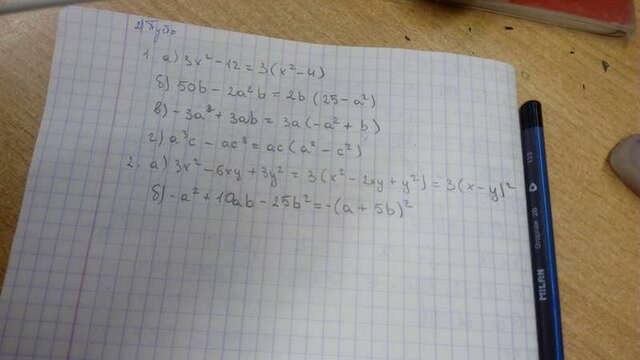 1. а) 3x² - 12 = 3(x² - 4)
б) 50b - 2a²b = 2b (25 - a²)
в) -3a³ + 3ab = 3a(-a² + b)
г) a³c - ac³ = ac(a² - c²)
2. а) 3x² - 6xy + 3y² = 3(x² - 2xy + y²) = 3(x - y)²
б) -a² + 10ab - 25b² = -(a + 5b)²
MILAN